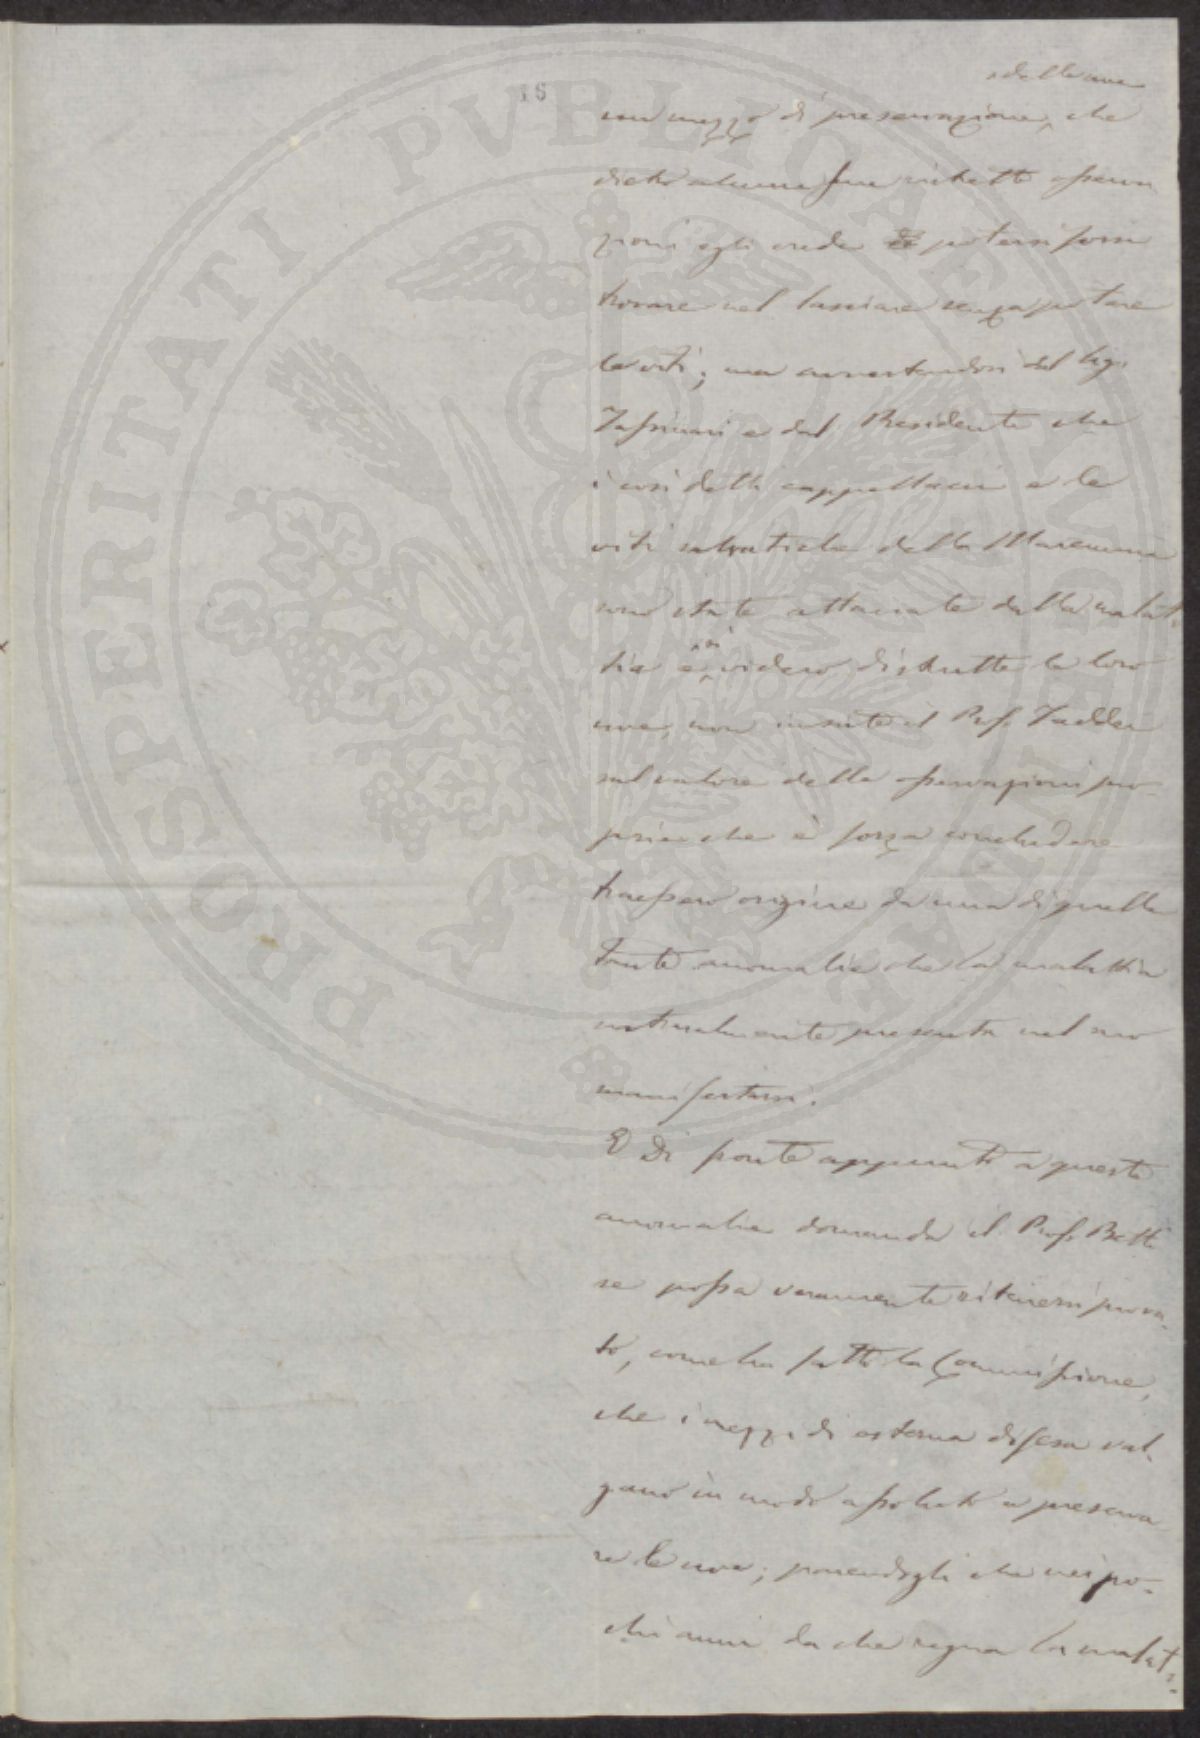 16
delle uve
un mezzo di preservazione, che
dietro alcune sue ristrette osserva
zioni egli crede potersi forse
trovare nel lasciare senza potare
le viti; ma avvertendosi dal Sig.
e dal Presidente che
i così detti cappellacci e le
viti salvatiche della Maremma
sono state attaccate dalla malat
tia e si videro distrutte le loro
uve, non insiste il Prof. Taddei
sul valore delle osservazioni pro-
prie che è forza concludere
traessero origine da una di quelle
tante anomalie che la malattia
naturalmente presenta nel suo
manifestarsi.
E di fronte appunto a queste
anomalie domanda il Prof. Betti
se possa veramente ritenersi prova-
to, come ha fatto la Commissione,
che i mezzi di esterna difesa val-
gano in modo assoluto a preserva
re le uve; parendogli che nei po-
chi anni da che regna la malat-
PROSPERITATI PVBLICAE AVGENDAE